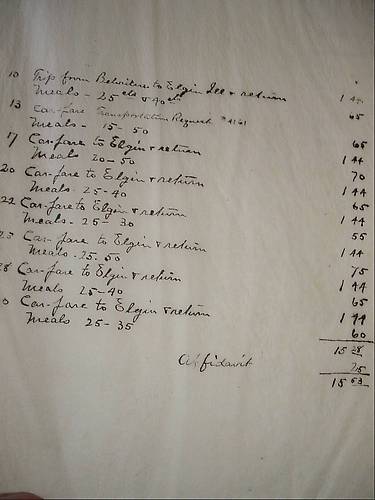 10 Trip from Belvidere to Elgin Ill & return 1 44
Meals - 25cts & 40cts 65
13 Car-fare Transportation Request #4161
Meals - 15-50 65
17 Car-fare to Elgin & return 1 44
Meals 20-50 70
20 Car-fare to Elgin & return 1 44
Meals. 25-40 65
22 Car-fare to Elgin & return 1 44
Meals. 25-30 55
25 Car-fare to Elgin & return 1 44
Meals. 25.50 75
28 Car-fare to Elgin & return 1 44
Meals 25-40 65
0 Car-fare to Elgin & return 1 44
Meals 25-35 60
15 38
Affidavit 25
15 63